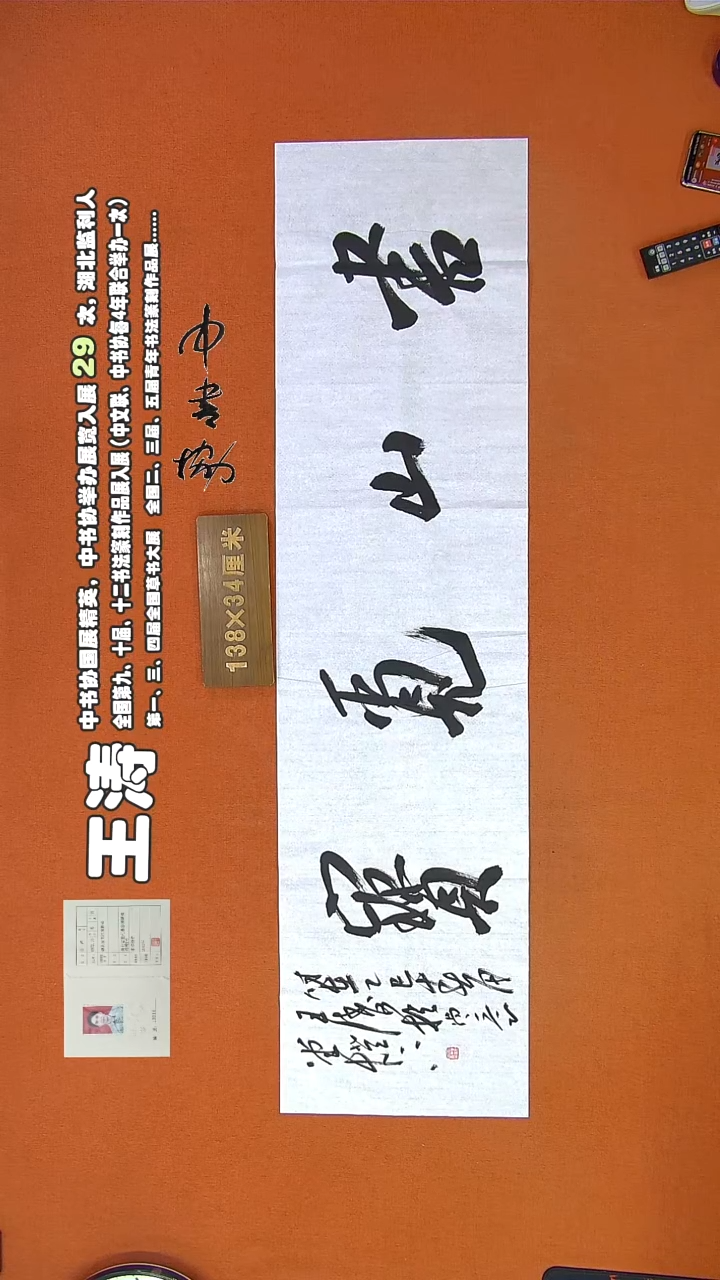 王涛
中书协国展精英，中书协举办展览入展 29 次，湖北监利人
全国第九、十届、十二书法篆刻作品展入展（中文联、中书协每4年联合举办一次）
第一、三、四届全国草书大展 全国二、三届、五届青年书法篆刻作品展……
138×34厘米
書山覓寶